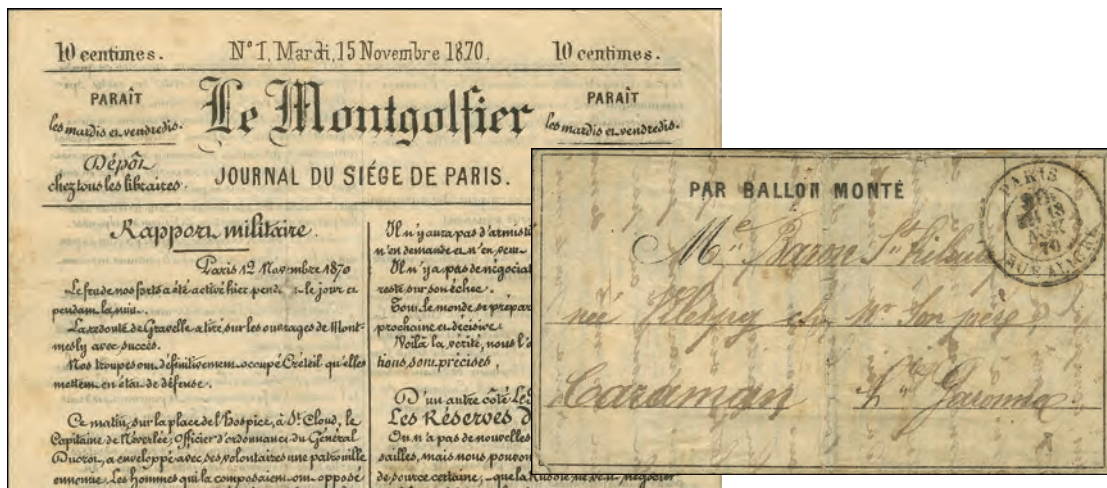 10 centimes. N° 1, Mardi, 15 Novembre 1870. 10 centimes.
PARAÎT
les mardis et vendredis.
Dépôt
chez tous les libraires.
Le Montgolfier
JOURNAL DU SIÉGE DE PARIS.
PARAÎT
les mardis et vendredis.
Rapport militaire.
Paris 12 Novembre 1870
Le feu de nos forts a été activé hier le jour et
pendant la nuit.
La redoute de Gravelle a tiré sur les ouvrages de Mont-
mesly avec succès.
Nos troupes ont définitivement occupé Créteil qu'elles
mettent en état de défense.
Ce matin, sur la place de l'hospice, à St. Cloud, le
Capitaine de Néverlée, Officier d'ordonnance du Général
Ducrot, a enveloppé avec ses volontaires une patrouille
ennemie. Les hommes qui la composaient ont opposé
Il n'y aura pas d'armist
n'en demande et n'en veut
Il n'y a pas de négociat
resté sur son échec.
Tout le monde se prépar
prochaine et décisive
Voilà la vérité, nous l'
tions sont précises.
D'un autre côté Le
Les Réserves D
On n'a pas de nouvelles
sailles, mais nous pouvon
de source certaine, que la Russie ne veut négocier
PAR BALLON MONTÉ
PARIS
70
Baron St
née chez Mr. son père
Caraman
Hte Garonne